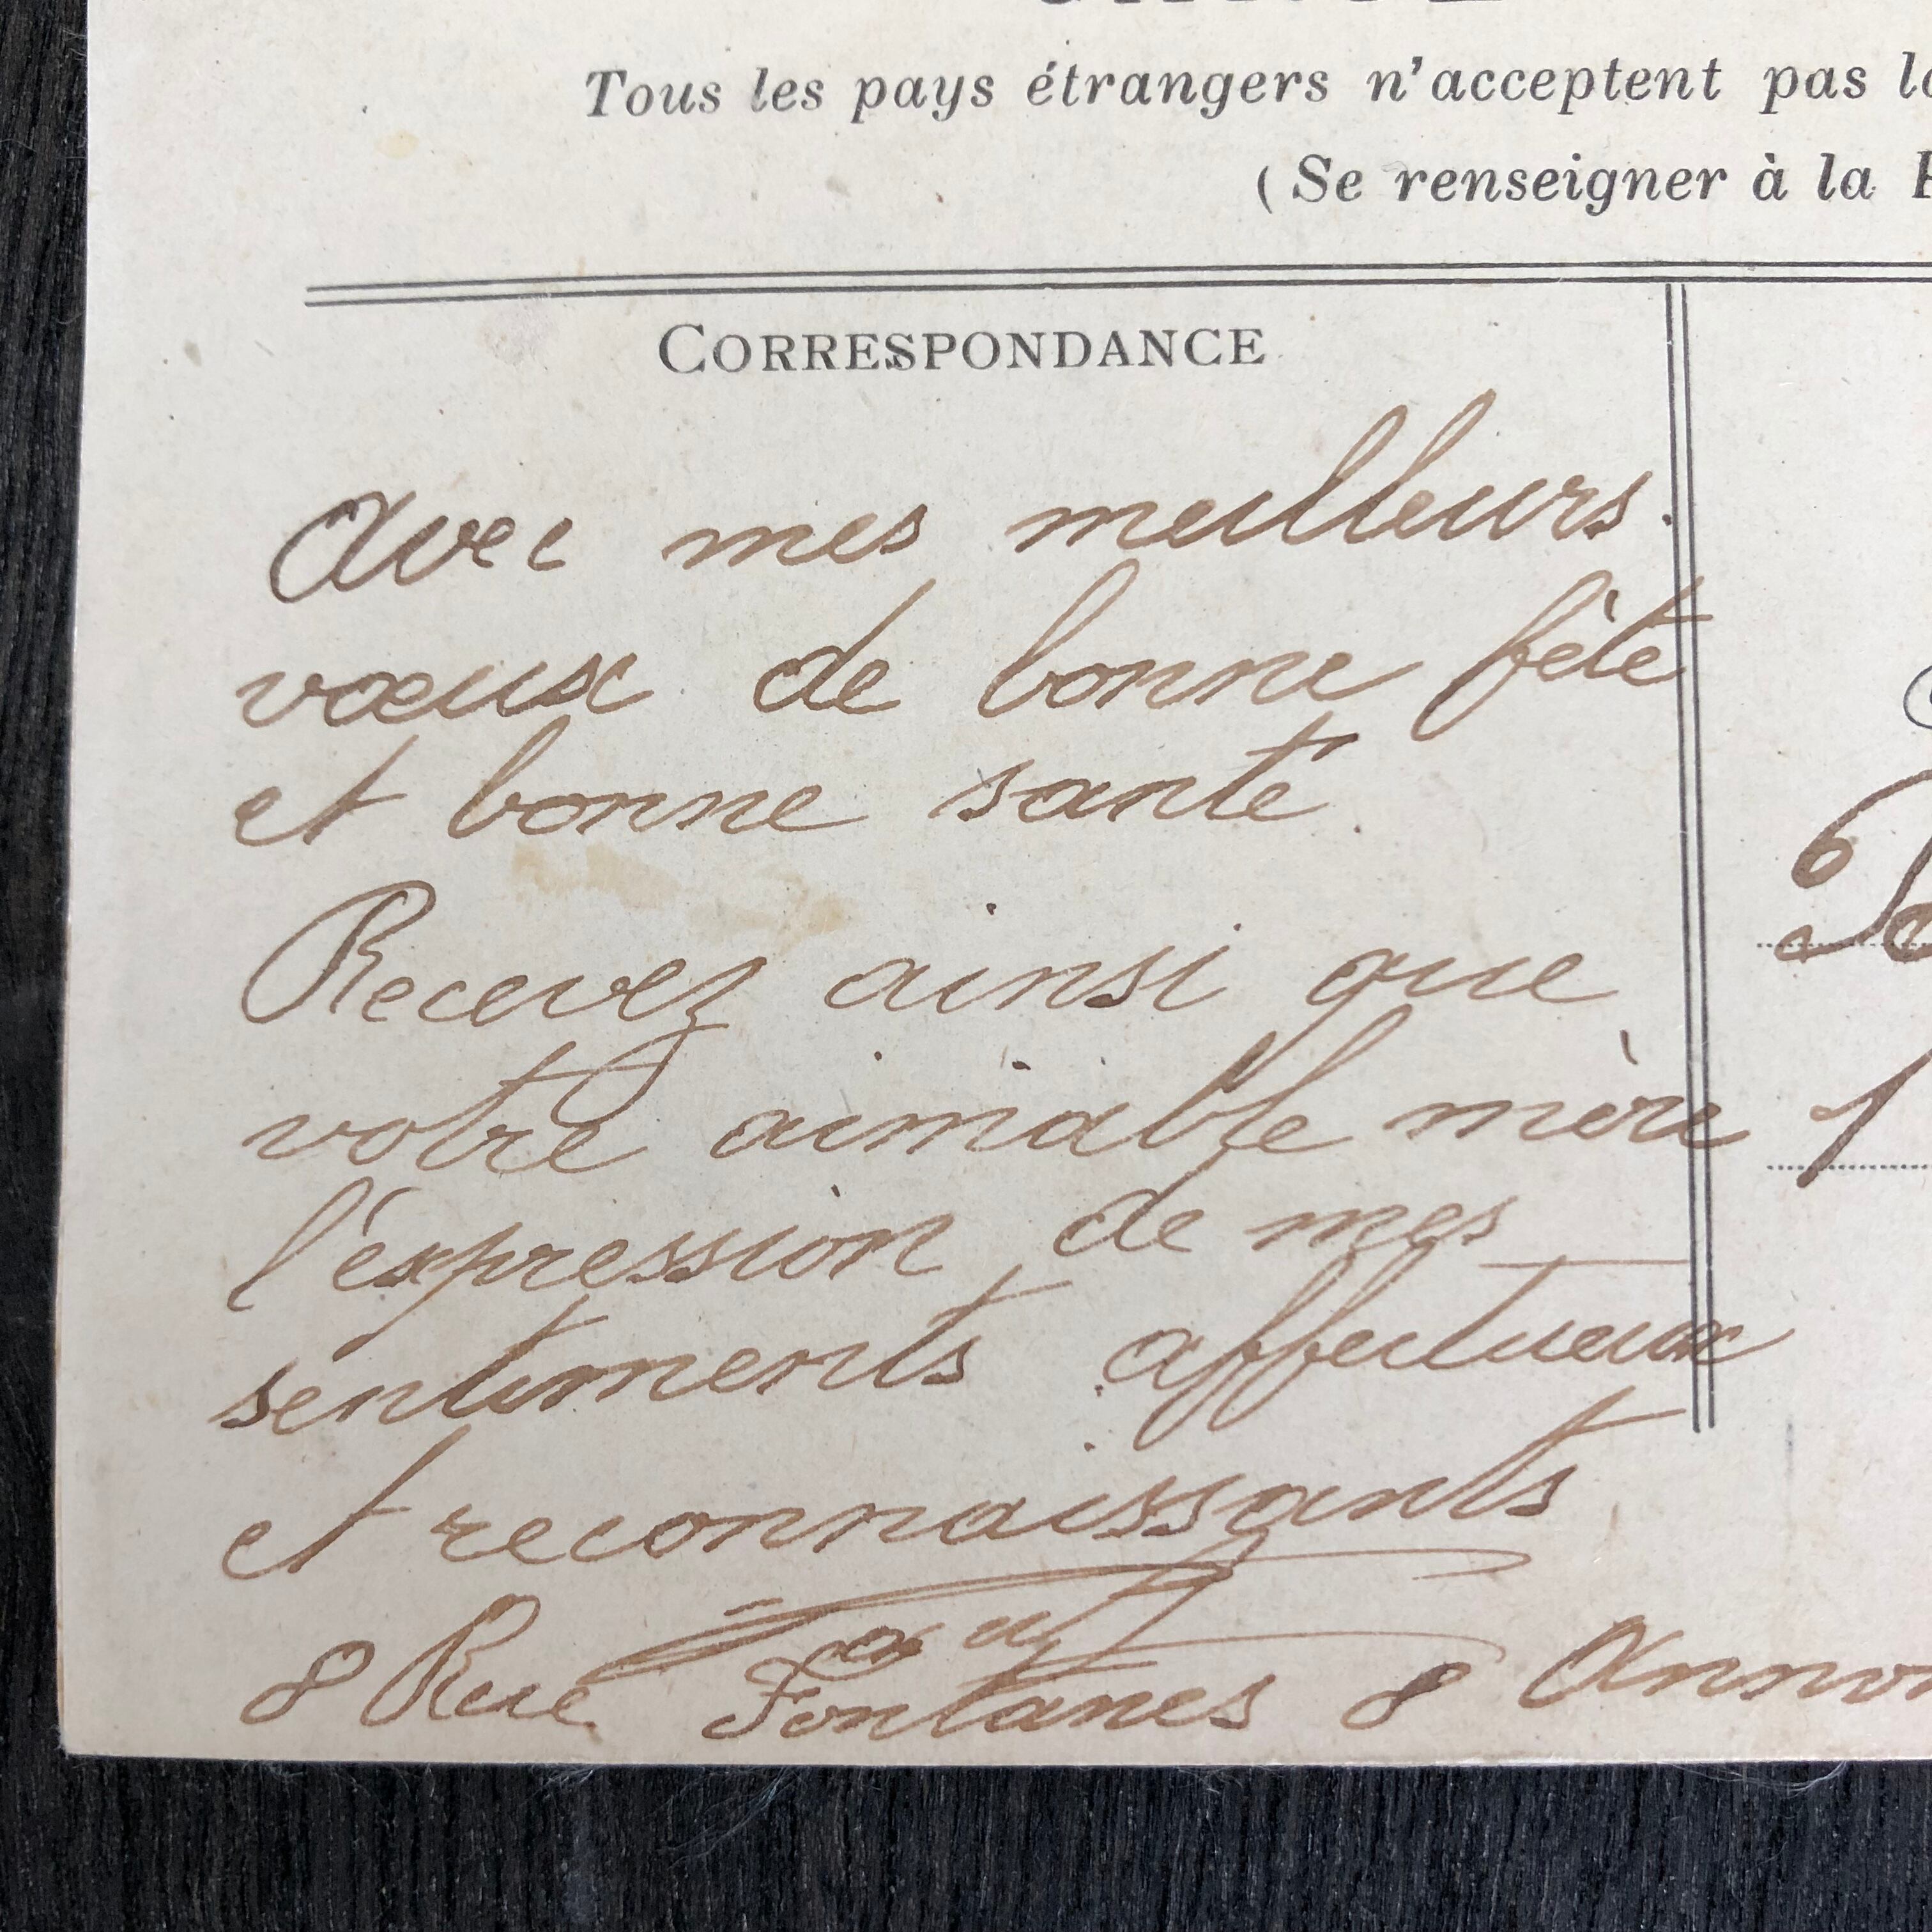 Tous les pays étrangers n'acceptent pas
(Se renseigner à la
CORRESPONDANCE
Avec mes meilleurs
vœux de bonne fête
et bonne santé.
Recevez ainsi que
votre aimable mère
l'expression de mes
sentiments affectueux
et reconnaissants
8 Rue Fontanes 8